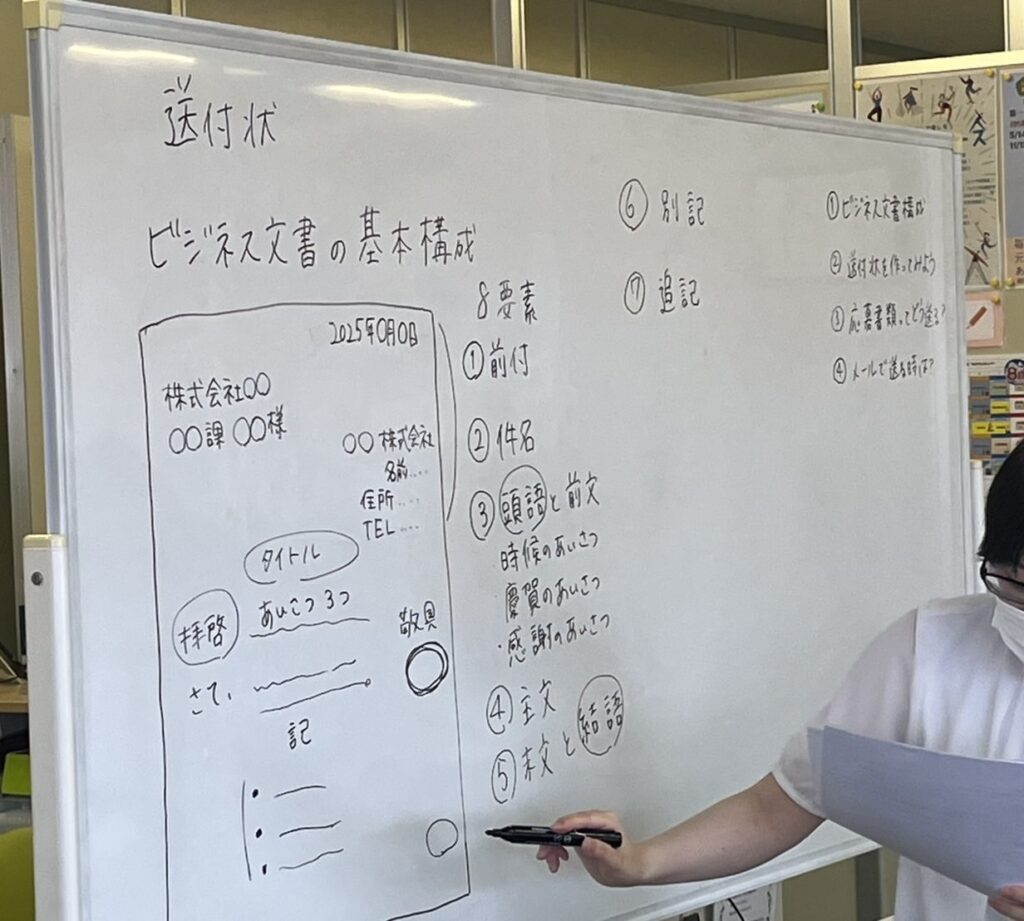 送付状
ビジネス文書の基本構成
2025年〇月〇日
株式会社〇〇
〇〇課 〇〇様
〇〇株式会社
名前....
住所....
TEL....
タイトル
拝啓
あいさつ3つ
敬具
さて、
記
8要素
①前付
②件名
③頭語と前文
・時候のあいさつ
・慶賀のあいさつ
・感謝のあいさつ
④主文
⑤末文と結語
⑥別記
⑦追記
①ビジネス文書構成
②送付状を作ってみよう
③応募書類ってどう送る?
④メールで送る時は?